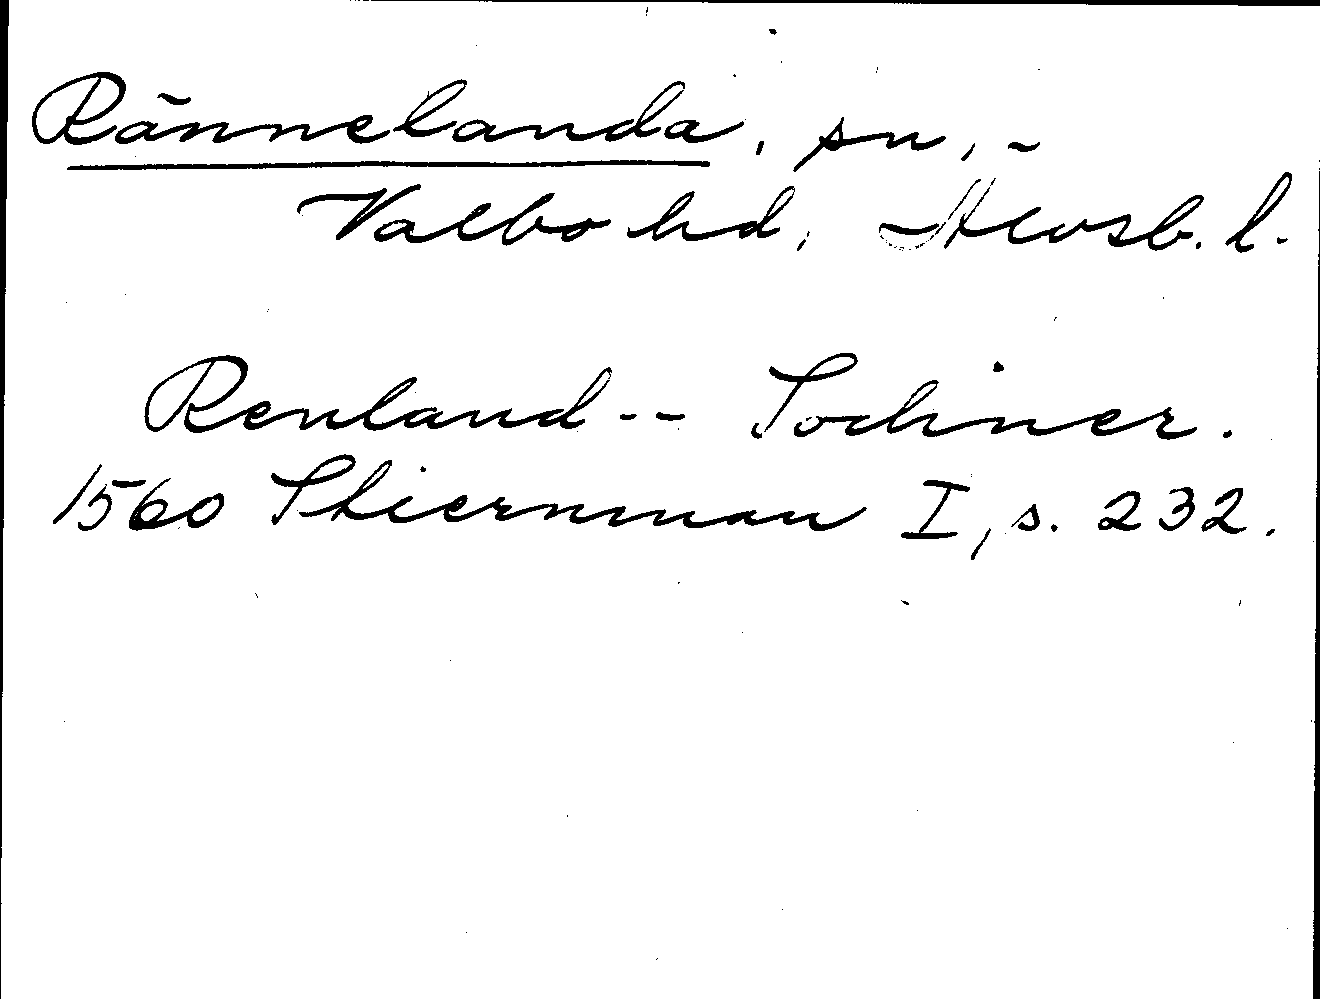 Rännelanda, sn, -
Valbo hd, Älvsb. l.
Renland -- Sochner.
1560 Stiernman I, s. 232.